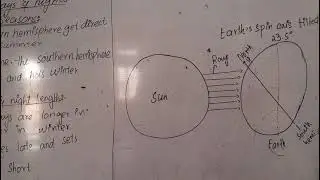 seasons
n hemisphere get direct
summer
the southern hemisphere
and has winter
night lengths
ays are longer in
in winter
late and sets
short
Earth's spin axis tilted
23.5°
Rays
Sun
Earth